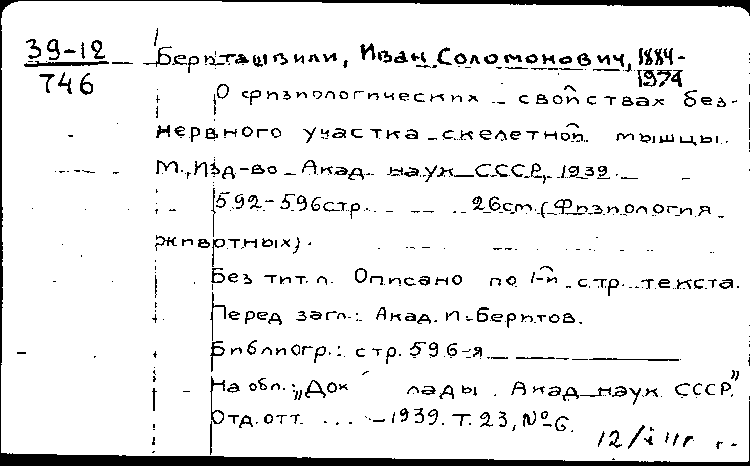 39-12
746
Бериташвили, Иван Соломонович, 1884-
1974
О физиологических свойствах без-
нервного участка скелетной мышцы.
М., Изд-во Акад. наук СССР, 1939.
592-596 стр. 26 см. (Физиология
животных).
Без тит. л. Описано по 1-й стр. текста.
Перед загл.: Акад. И. Беритов.
Библиогр.: стр. 596-я
На обл.: „Доклады Акад. наук СССР."
Отд. отт. ... - 1939. Т. 23, № 6.